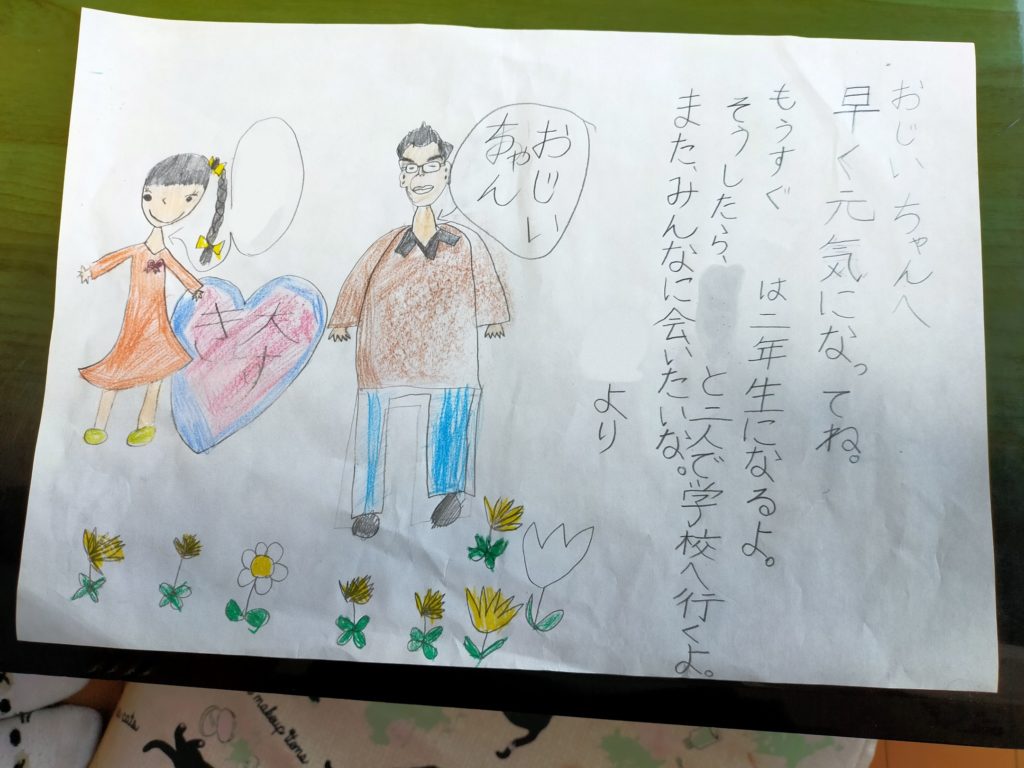 おじいちゃんへ
早く元気になってね。
もうすぐ　は二年生になるよ。
そうしたら、　と二人で学校へ行くよ。
また、みんなに会いたいな。
より
おじい
ちゃん
キス
ナ
makeup time